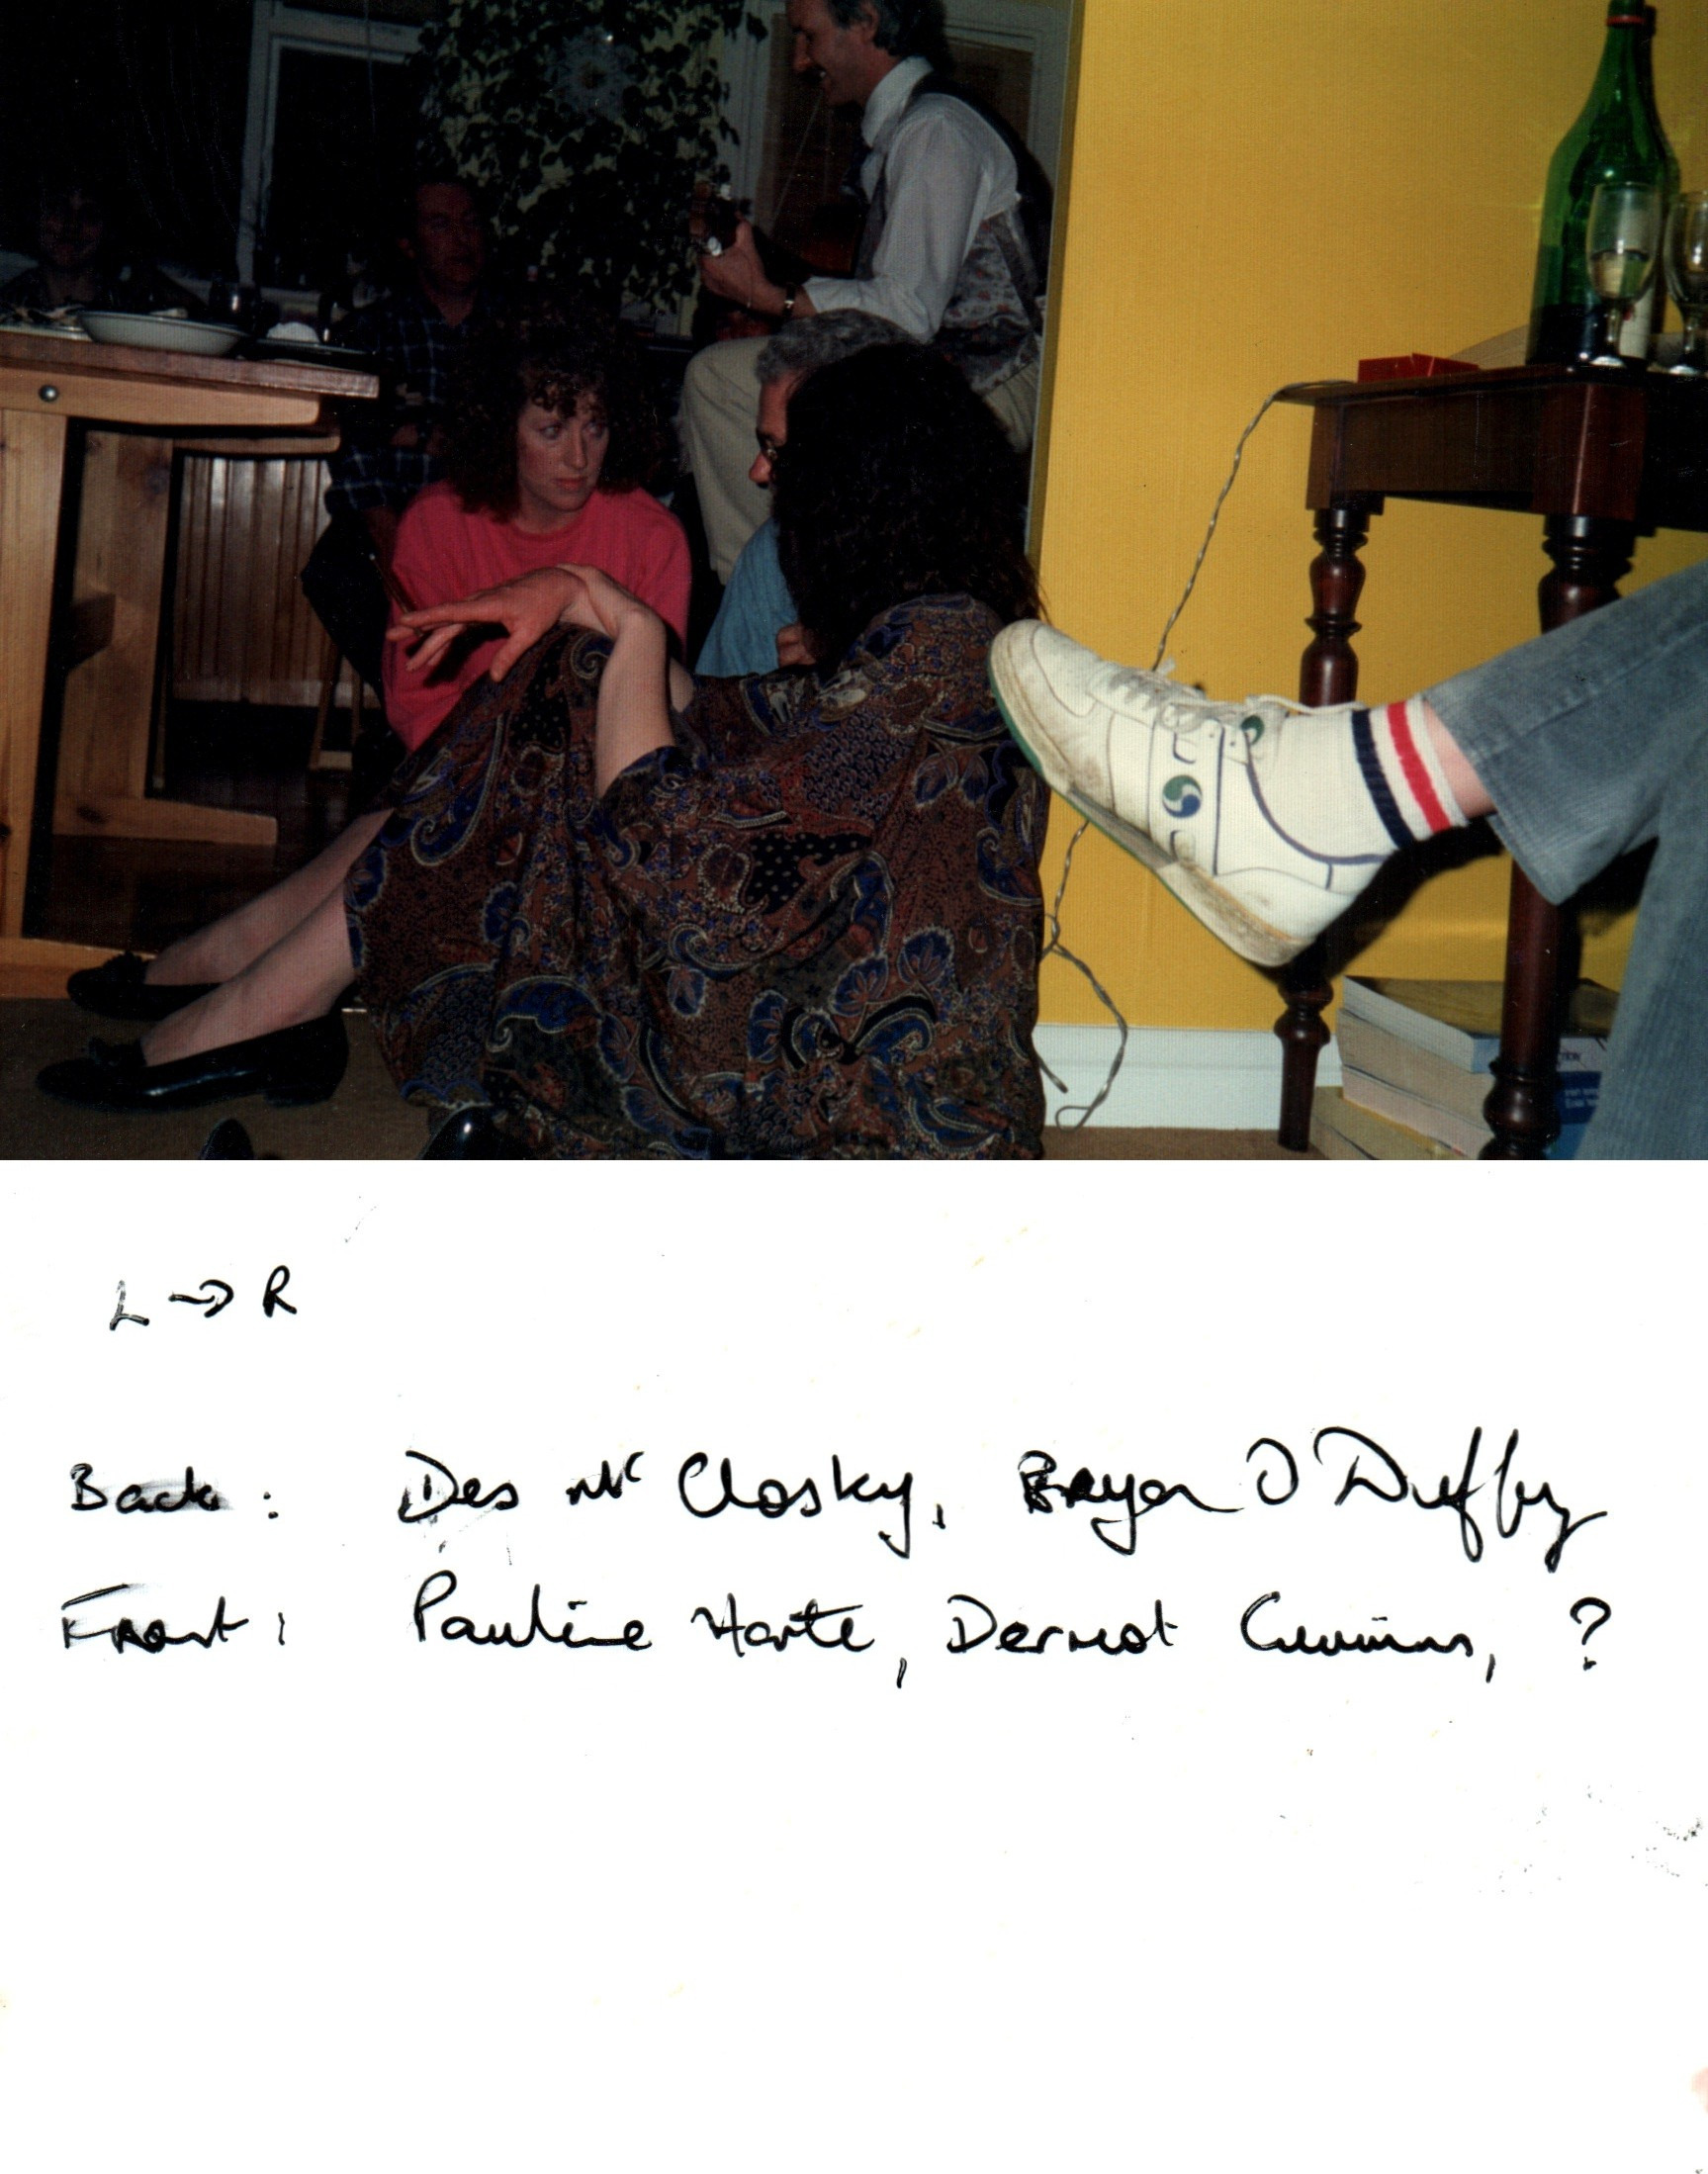 L → R
Back: Des Mc Closky, Bryan O Duffy
Front: Pauline Harte, Dermot Cummins, ?